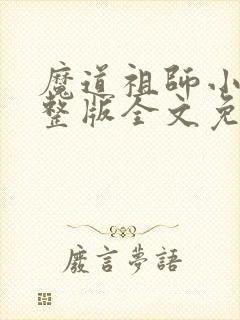 魔道祖師小
整版全文免
廢言夢語